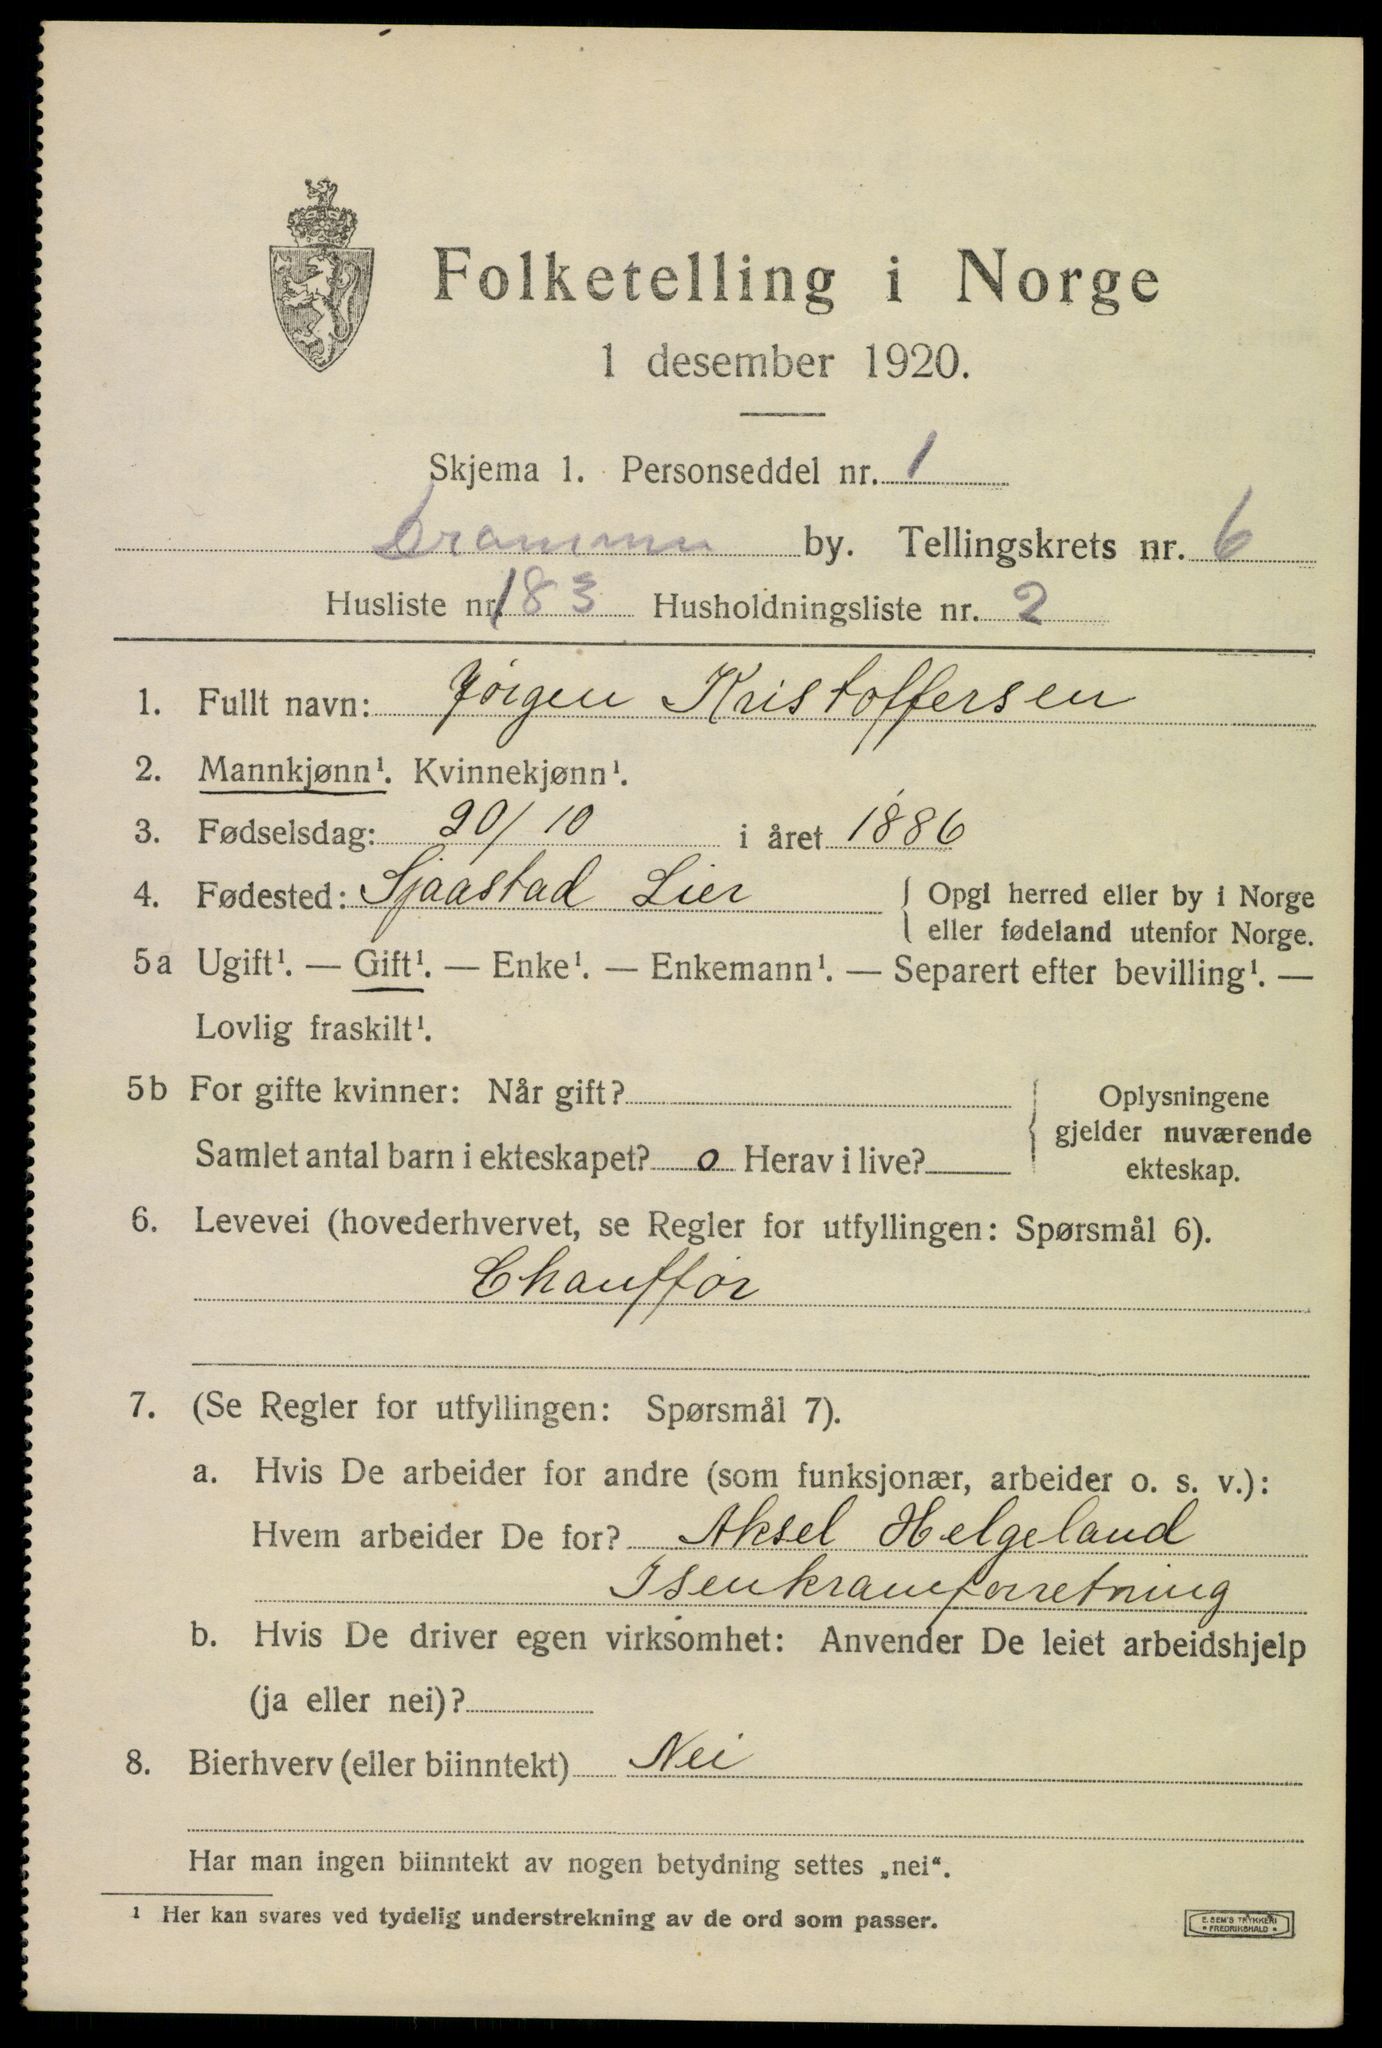 Folketelling i Norge
1 desember 1920.
Skjema 1. Personseddel nr. 1
Drammen by. Tellingskrets nr. 6
Husliste nr. 183 Husholdningsliste nr. 2
1. Fullt navn: Jørgen Kristoffersen
2. Mannkjønn¹. Kvinnekjønn¹.
3. Fødselsdag: 20/10 i året 1886
4. Fødested: Sjaastad Lier { Opgi herred eller by i Norge
eller fødeland utenfor Norge.
5a Ugift¹. — Gift¹. — Enke¹. — Enkemann¹. — Separert efter bevilling¹. —
Lovlig fraskilt¹.
5b For gifte kvinner: Når gift? { Oplysningene
gjelder nuværende
ekteskap.
Samlet antal barn i ekteskapet? 0 Herav i live?
6. Levevei (hovederhvervet, se Regler for utfyllingen: Spørsmål 6).
Chauffør
7. (Se Regler for utfyllingen: Spørsmål 7).
a. Hvis De arbeider for andre (som funksjonær, arbeider o. s. v.):
Hvem arbeider De for? Aksel Helgeland
Isenkramforretning
b. Hvis De driver egen virksomhet: Anvender De leiet arbeidshjelp
(ja eller nei)?
8. Bierhverv (eller biinntekt) Nei
Har man ingen biinntekt av nogen betydning settes „nei“.
¹ Her kan svares ved tydelig understrekning av de ord som passer.
E. SEM'S TRYKKERI
* FREDRIKSHALD *